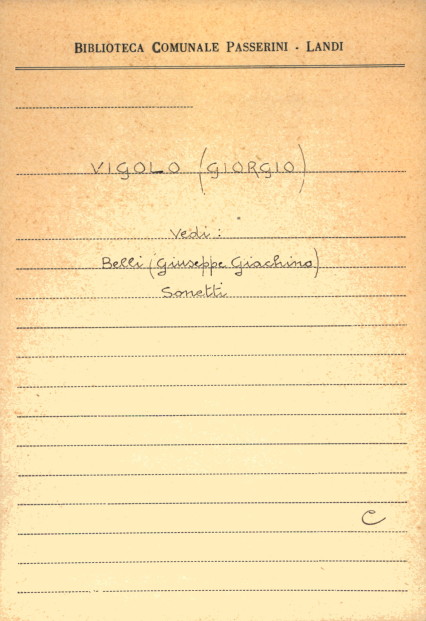 BIBLIOTECA COMUNALE PASSERINI - LANDI
VIGOLO (GIORGIO)
Vedi:
Belli (Giuseppe Giachino)
Sonetti
C